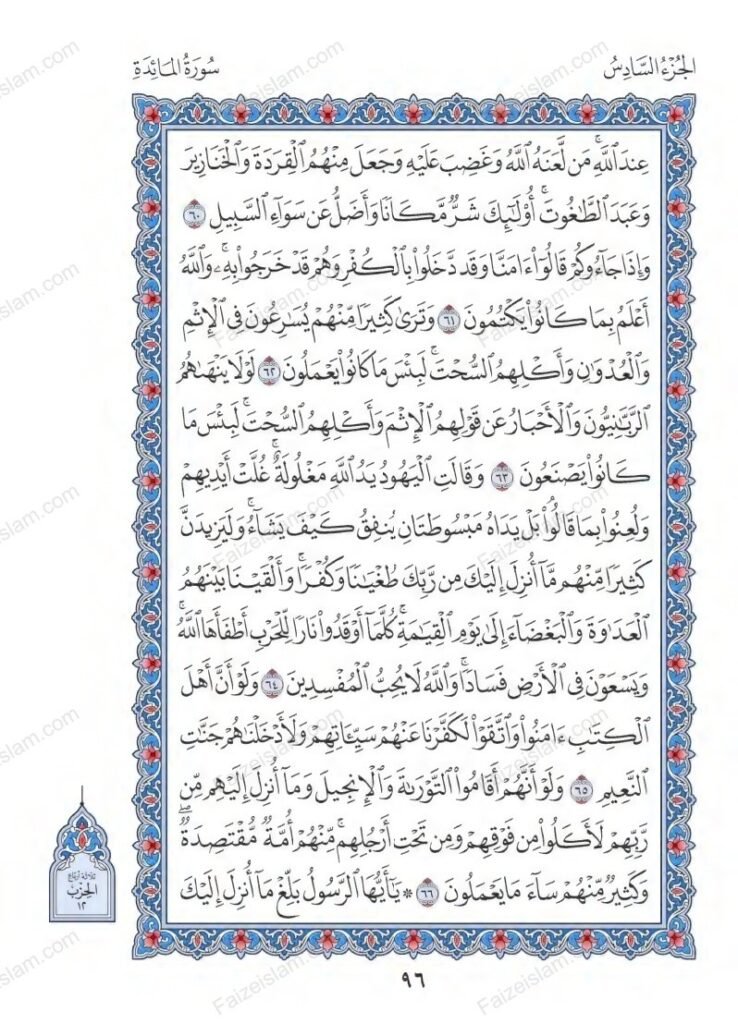 الجُزْءُ السَّادِسُ
سُورَةُ المَائِدَةِ
عِندَ ٱللَّهِۚ مَن لَّعَنَهُ ٱللَّهُ وَغَضِبَ عَلَيْهِ وَجَعَلَ مِنْهُمُ ٱلْقِرَدَةَ وَٱلْخَنَازِيرَ
وَعَبَدَ ٱلطَّٰغُوتَۚ أُو۟لَٰٓئِكَ شَرٌّ مَّكَانًا وَأَضَلُّ عَن سَوَآءِ ٱلسَّبِيلِ ٦٠
وَإِذَا جَآءُوكُمْ قَالُوٓا۟ ءَامَنَّا وَقَد دَّخَلُوا۟ بِٱلْكُفْرِ وَهُمْ قَدْ خَرَجُوا۟ بِهِۦۚ وَٱللَّهُ
أَعْلَمُ بِمَا كَانُوا۟ يَكْتُمُونَ ٦١ وَتَرَىٰ كَثِيرًا مِّنْهُمْ يُسَٰرِعُونَ فِى ٱلْإِثْمِ
وَٱلْعُدْوَٰنِ وَأَكْلِهِمُ ٱلسُّحْتَۚ لَبِئْسَ مَا كَانُوا۟ يَعْمَلُونَ ٦٢ لَوْلَا يَنْهَىٰهُمُ
ٱلرَّبَّٰنِيُّونَ وَٱلْأَحْبَارُ عَن قَوْلِهِمُ ٱلْإِثْمَ وَأَكْلِهِمُ ٱلسُّحْتَۚ لَبِئْسَ مَا
كَانُوا۟ يَصْنَعُونَ ٦٣ وَقَالَتِ ٱلْيَهُودُ يَدُ ٱللَّهِ مَغْلُولَةٌۚ غُلَّتْ أَيْدِيهِمْ
وَلُعِنُوا۟ بِمَا قَالُوا۟ۘ بَلْ يَدَاهُ مَبْسُوطَتَانِ يُنفِقُ كَيْفَ يَشَآءُۚ وَلَيَزِيدَنَّ
كَثِيرًا مِّنْهُم مَّآ أُنزِلَ إِلَيْكَ مِن رَّبِّكَ طُغْيَٰنًا وَكُفْرًاۚ وَأَلْقَيْنَا بَيْنَهُمُ
ٱلْعَدَٰوَةَ وَٱلْبَغْضَآءَ إِلَىٰ يَوْمِ ٱلْقِيَٰمَةِۚ كُلَّمَآ أَوْقَدُوا۟ نَارًا لِّلْحَرْبِ أَطْفَأَهَا ٱللَّهُۚ
وَيَسْعَوْنَ فِى ٱلْأَرْضِ فَسَادًاۚ وَٱللَّهُ لَا يُحِبُّ ٱلْمُفْسِدِينَ ٦٤ وَلَوْ أَنَّ أَهْلَ
ٱلْكِتَٰبِ ءَامَنُوا۟ وَٱتَّقَوْا۟ لَكَفَّرْنَا عَنْهُمْ سَيِّـَٔاتِهِمْ وَلَأَدْخَلْنَٰهُمْ جَنَّٰتِ
ٱلنَّعِيمِ ٦٥ وَلَوْ أَنَّهُمْ أَقَامُوا۟ ٱلتَّوْرَىٰةَ وَٱلْإِنجِيلَ وَمَآ أُنزِلَ إِلَيْهِم مِّن
رَّبِّهِمْ لَأَكَلُوا۟ مِن فَوْقِهِمْ وَمِن تَحْتِ أَرْجُلِهِمۚ مِّنْهُمْ أُمَّةٌ مُّقْتَصِدَةٌۖ
وَكَثِيرٌ مِّنْهُمْ سَآءَ مَا يَعْمَلُونَ ٦٦ ۞ يَٰٓأَيُّهَا ٱلرَّسُولُ بَلِّغْ مَآ أُنزِلَ إِلَيْكَ
ثلاثة أرباع
الحزب
١٢
٩٦
Faizeislam.com